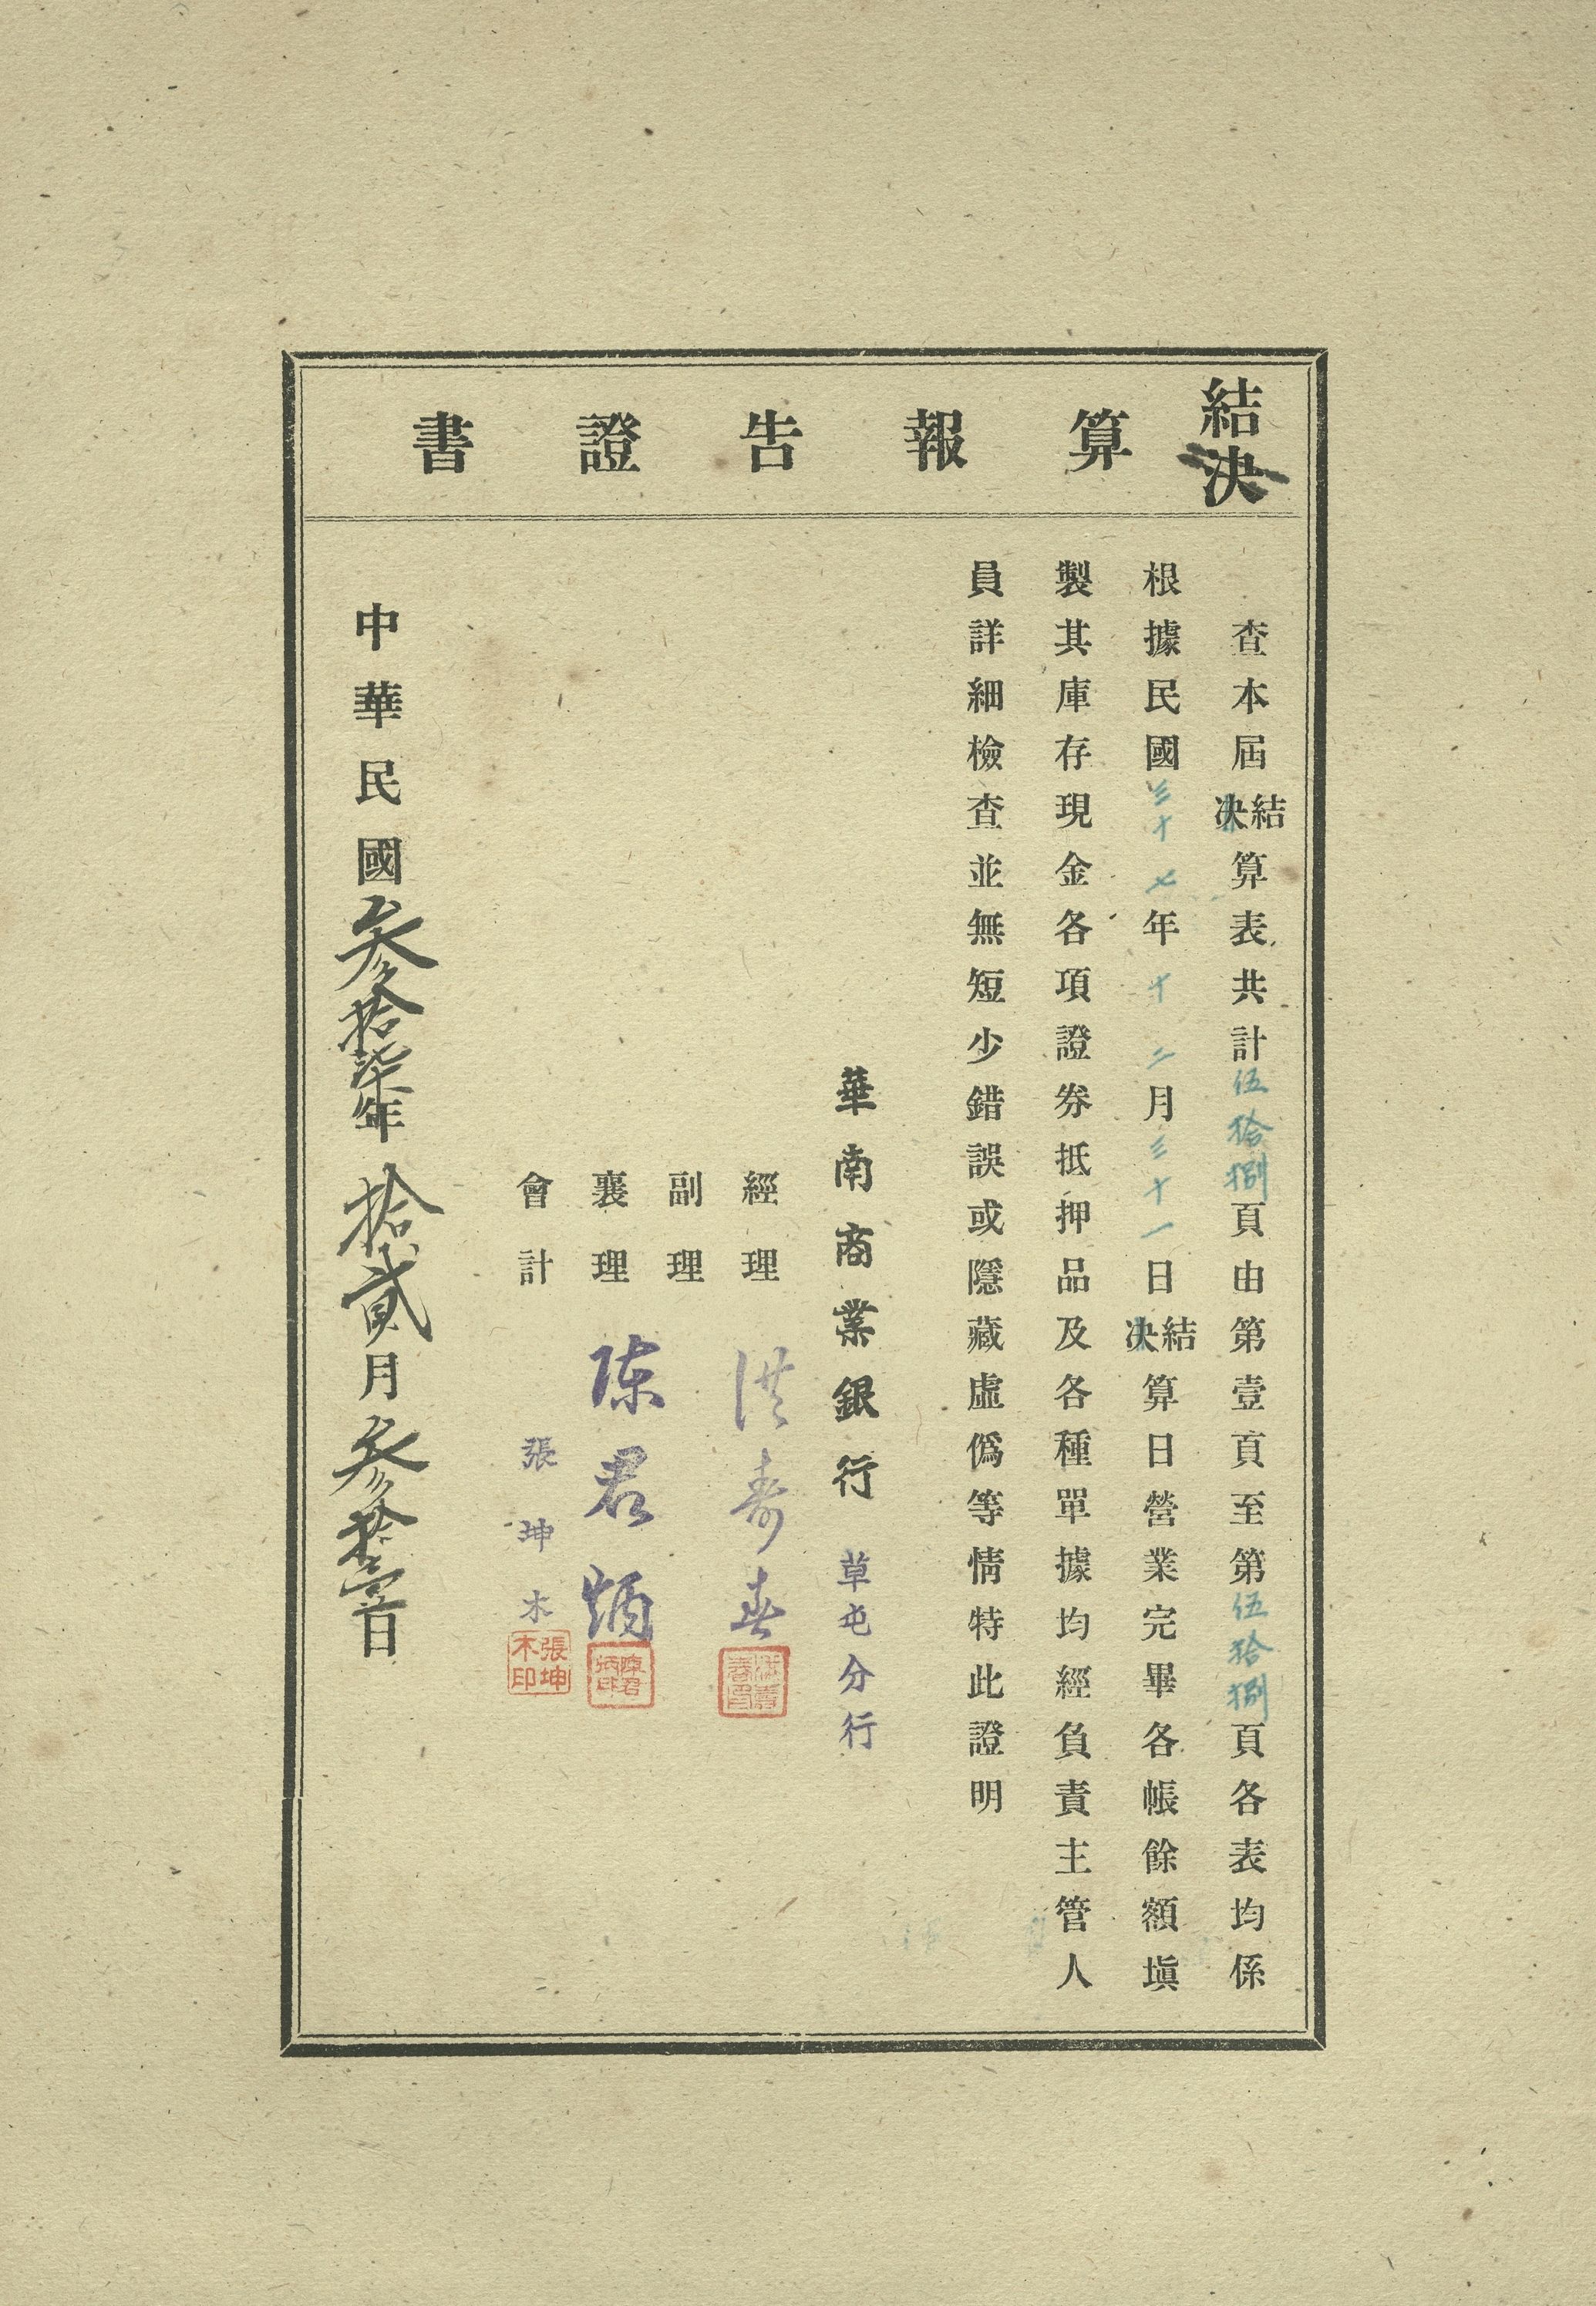 結決算報告證書
查本屆結決算表共計伍拾捌頁由第壹頁至第伍拾捌頁各表均係
根據民國三十七年十二月三十一日結決算日營業完畢各帳餘額塡
製其庫存現金各項證券抵押品及各種單據均經負責主管人
員詳細檢查並無短少錯誤或隱藏虛僞等情特此證明
華南商業銀行 草屯分行
經理 洪壽春
副理
襄理 陳君炳
會計 張坤木
張坤木印
中華民國叁拾柒年拾貳月叁拾壹日